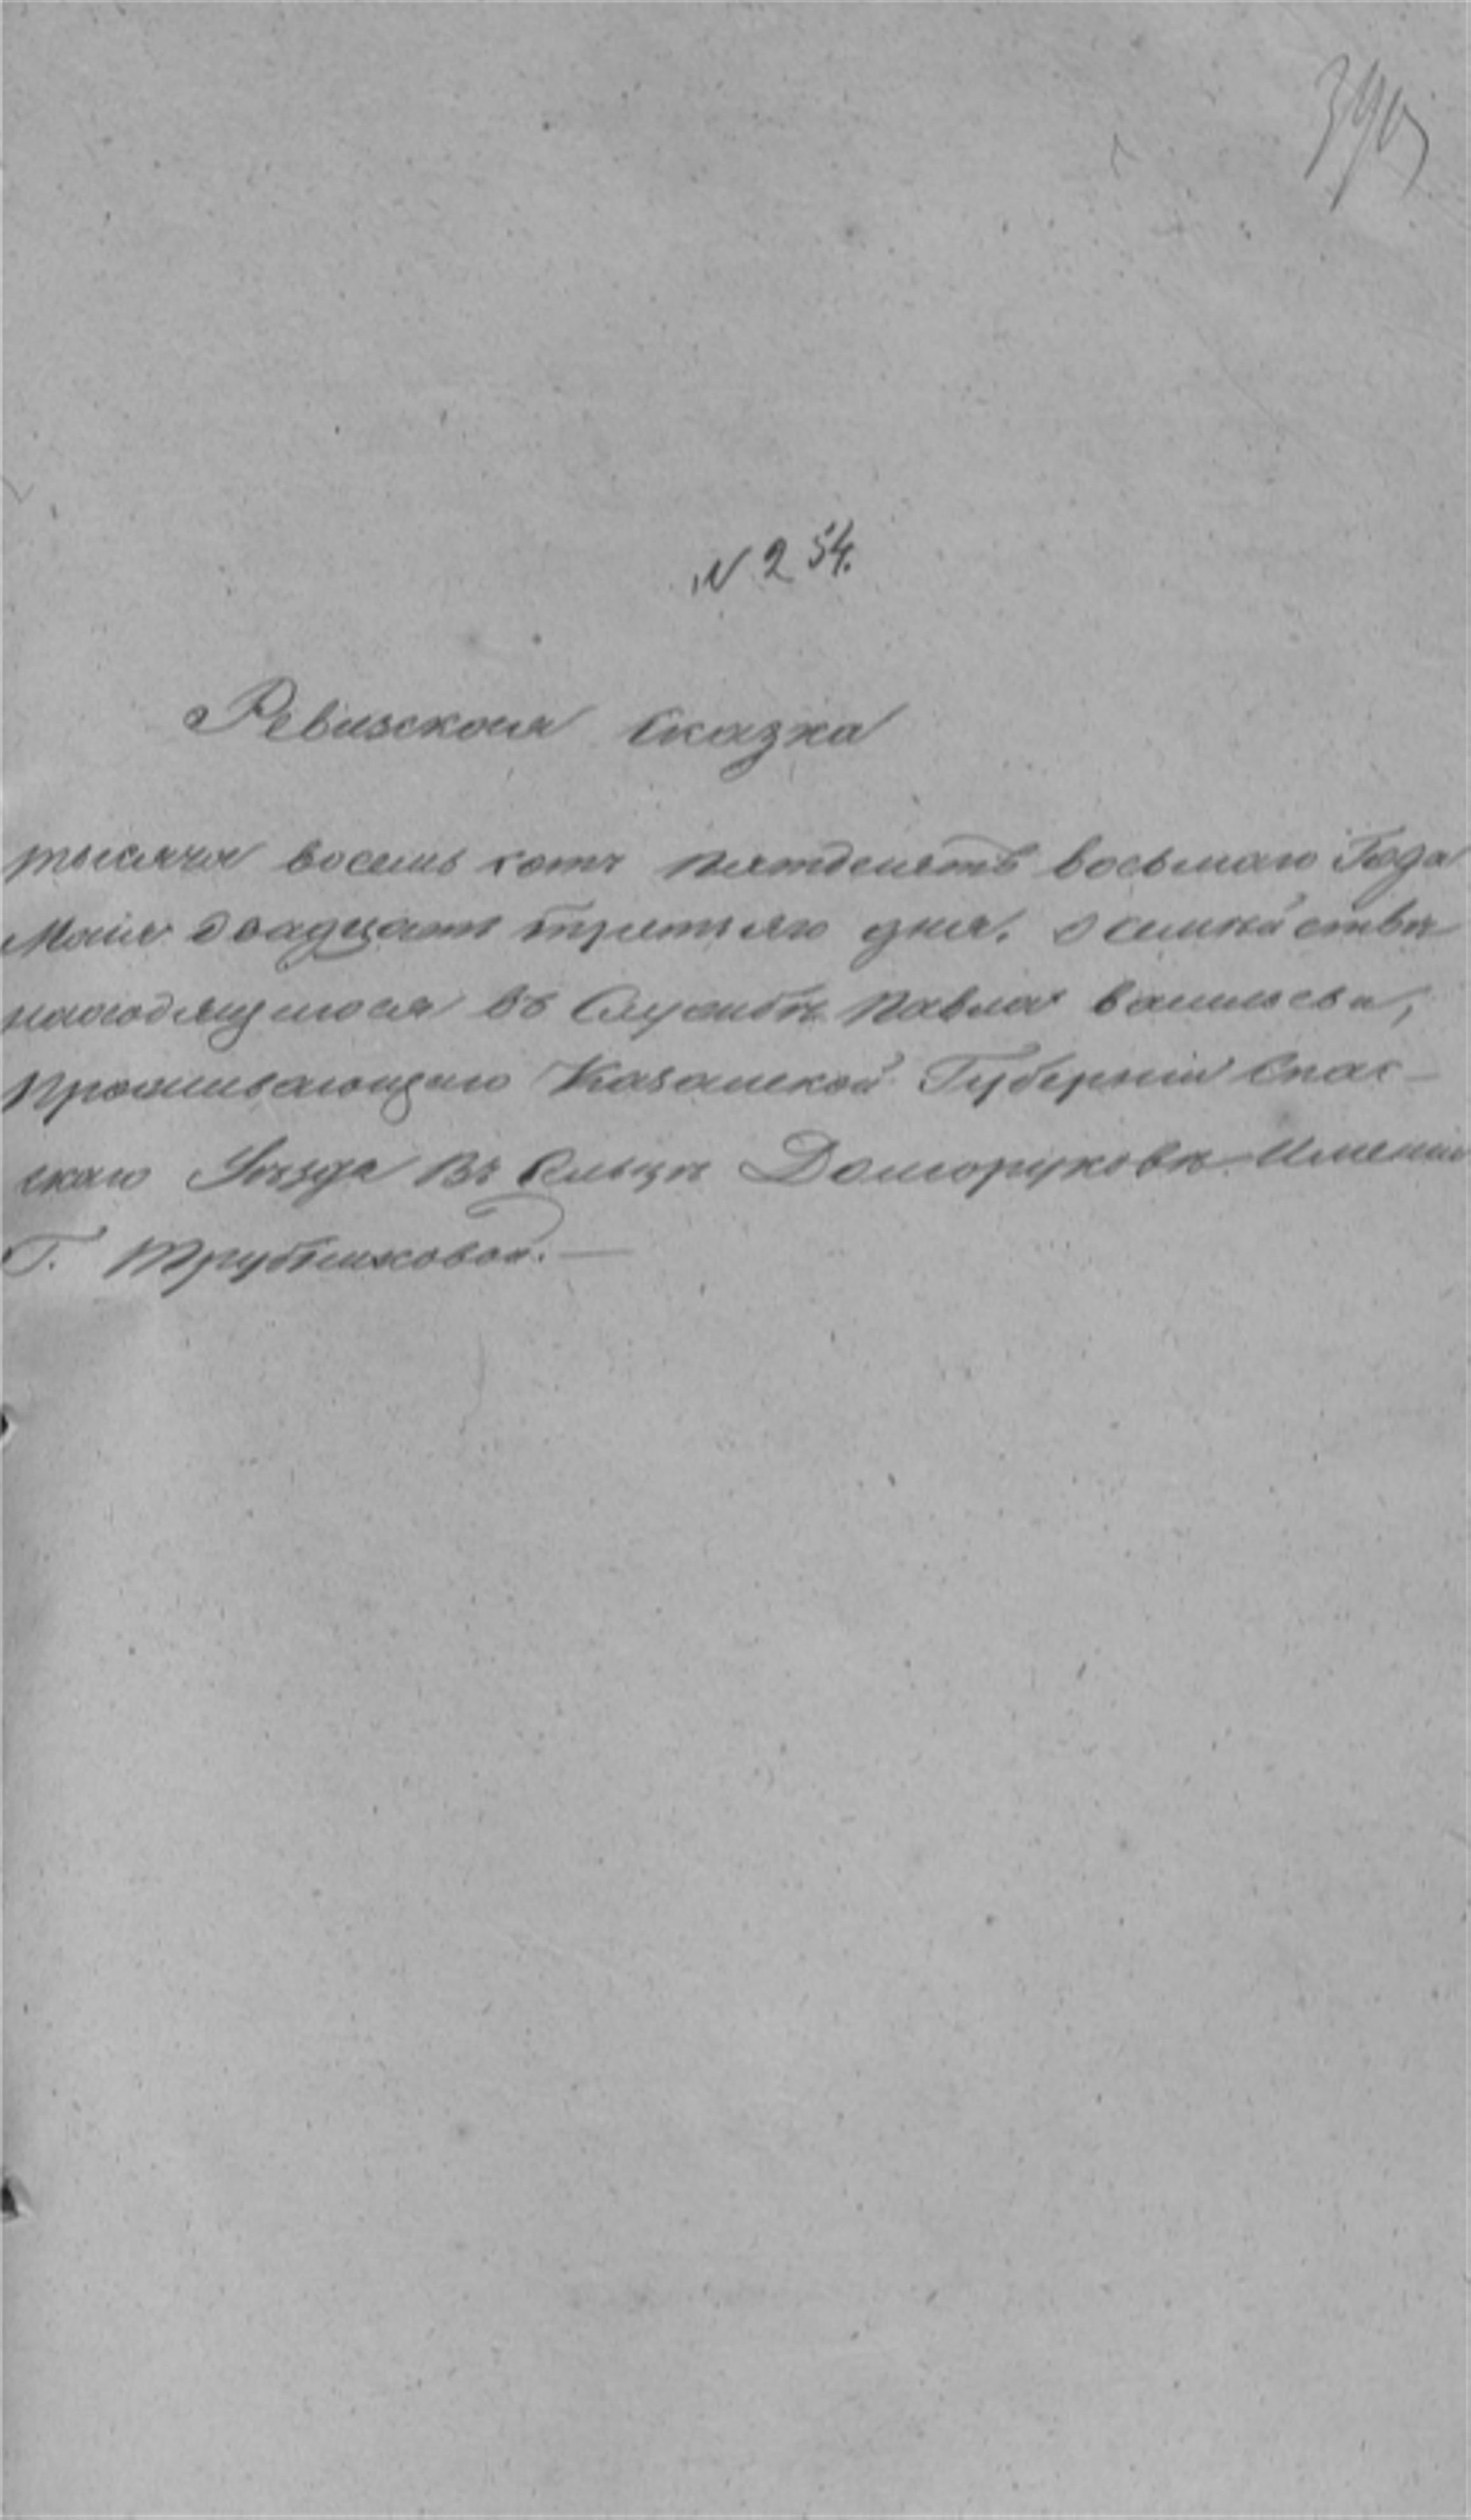 390
N 254.
Ревизская Сказка
тысяча восемь сотъ пятдесятъ восьмаго Года
Маія двадцать третьяго дня. О семействѣ
находящагося въ Службѣ Павла Васильева,
Проживающаго Казанской Губерніи Спас-
скаго Уѣзда Въ Сельцѣ Долгоруковѣ Имении
Г. Трубниковой. —